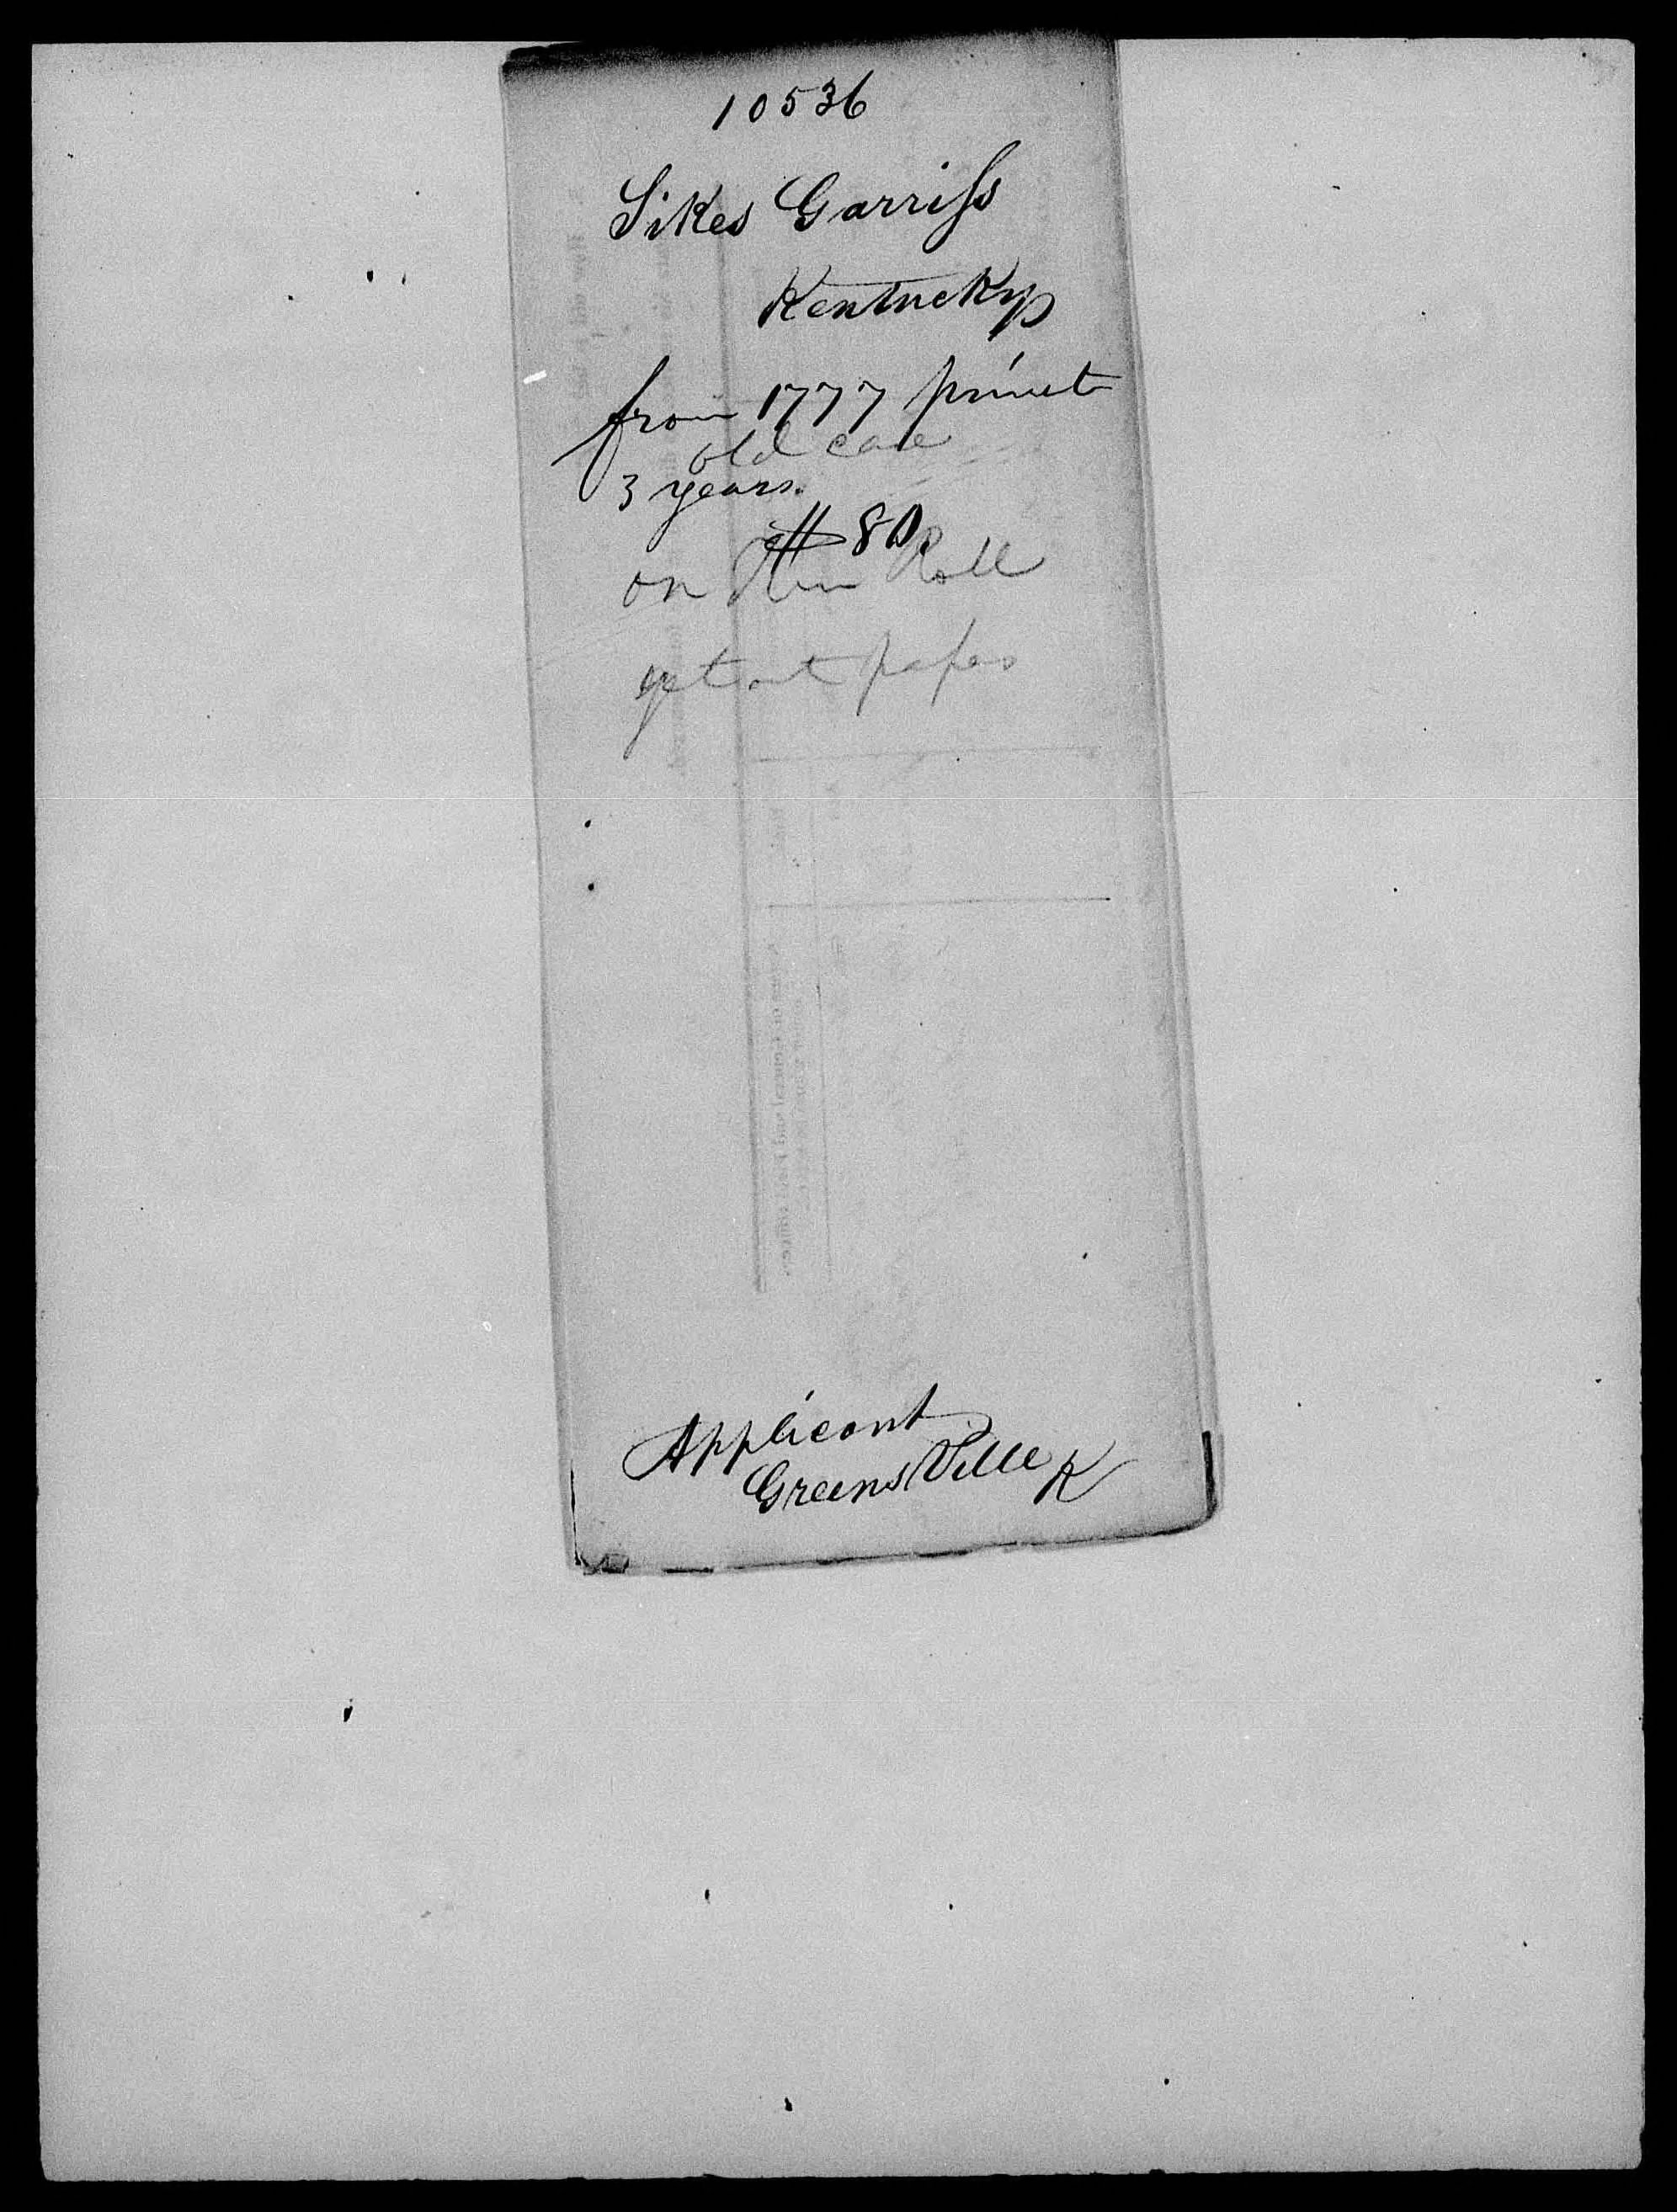 10536
Sikes Garriss
Kentucky
from 1777 privet
old case
3 years.
$ 80.
on Ken Roll
get out papers
Applicant
GreensVille K